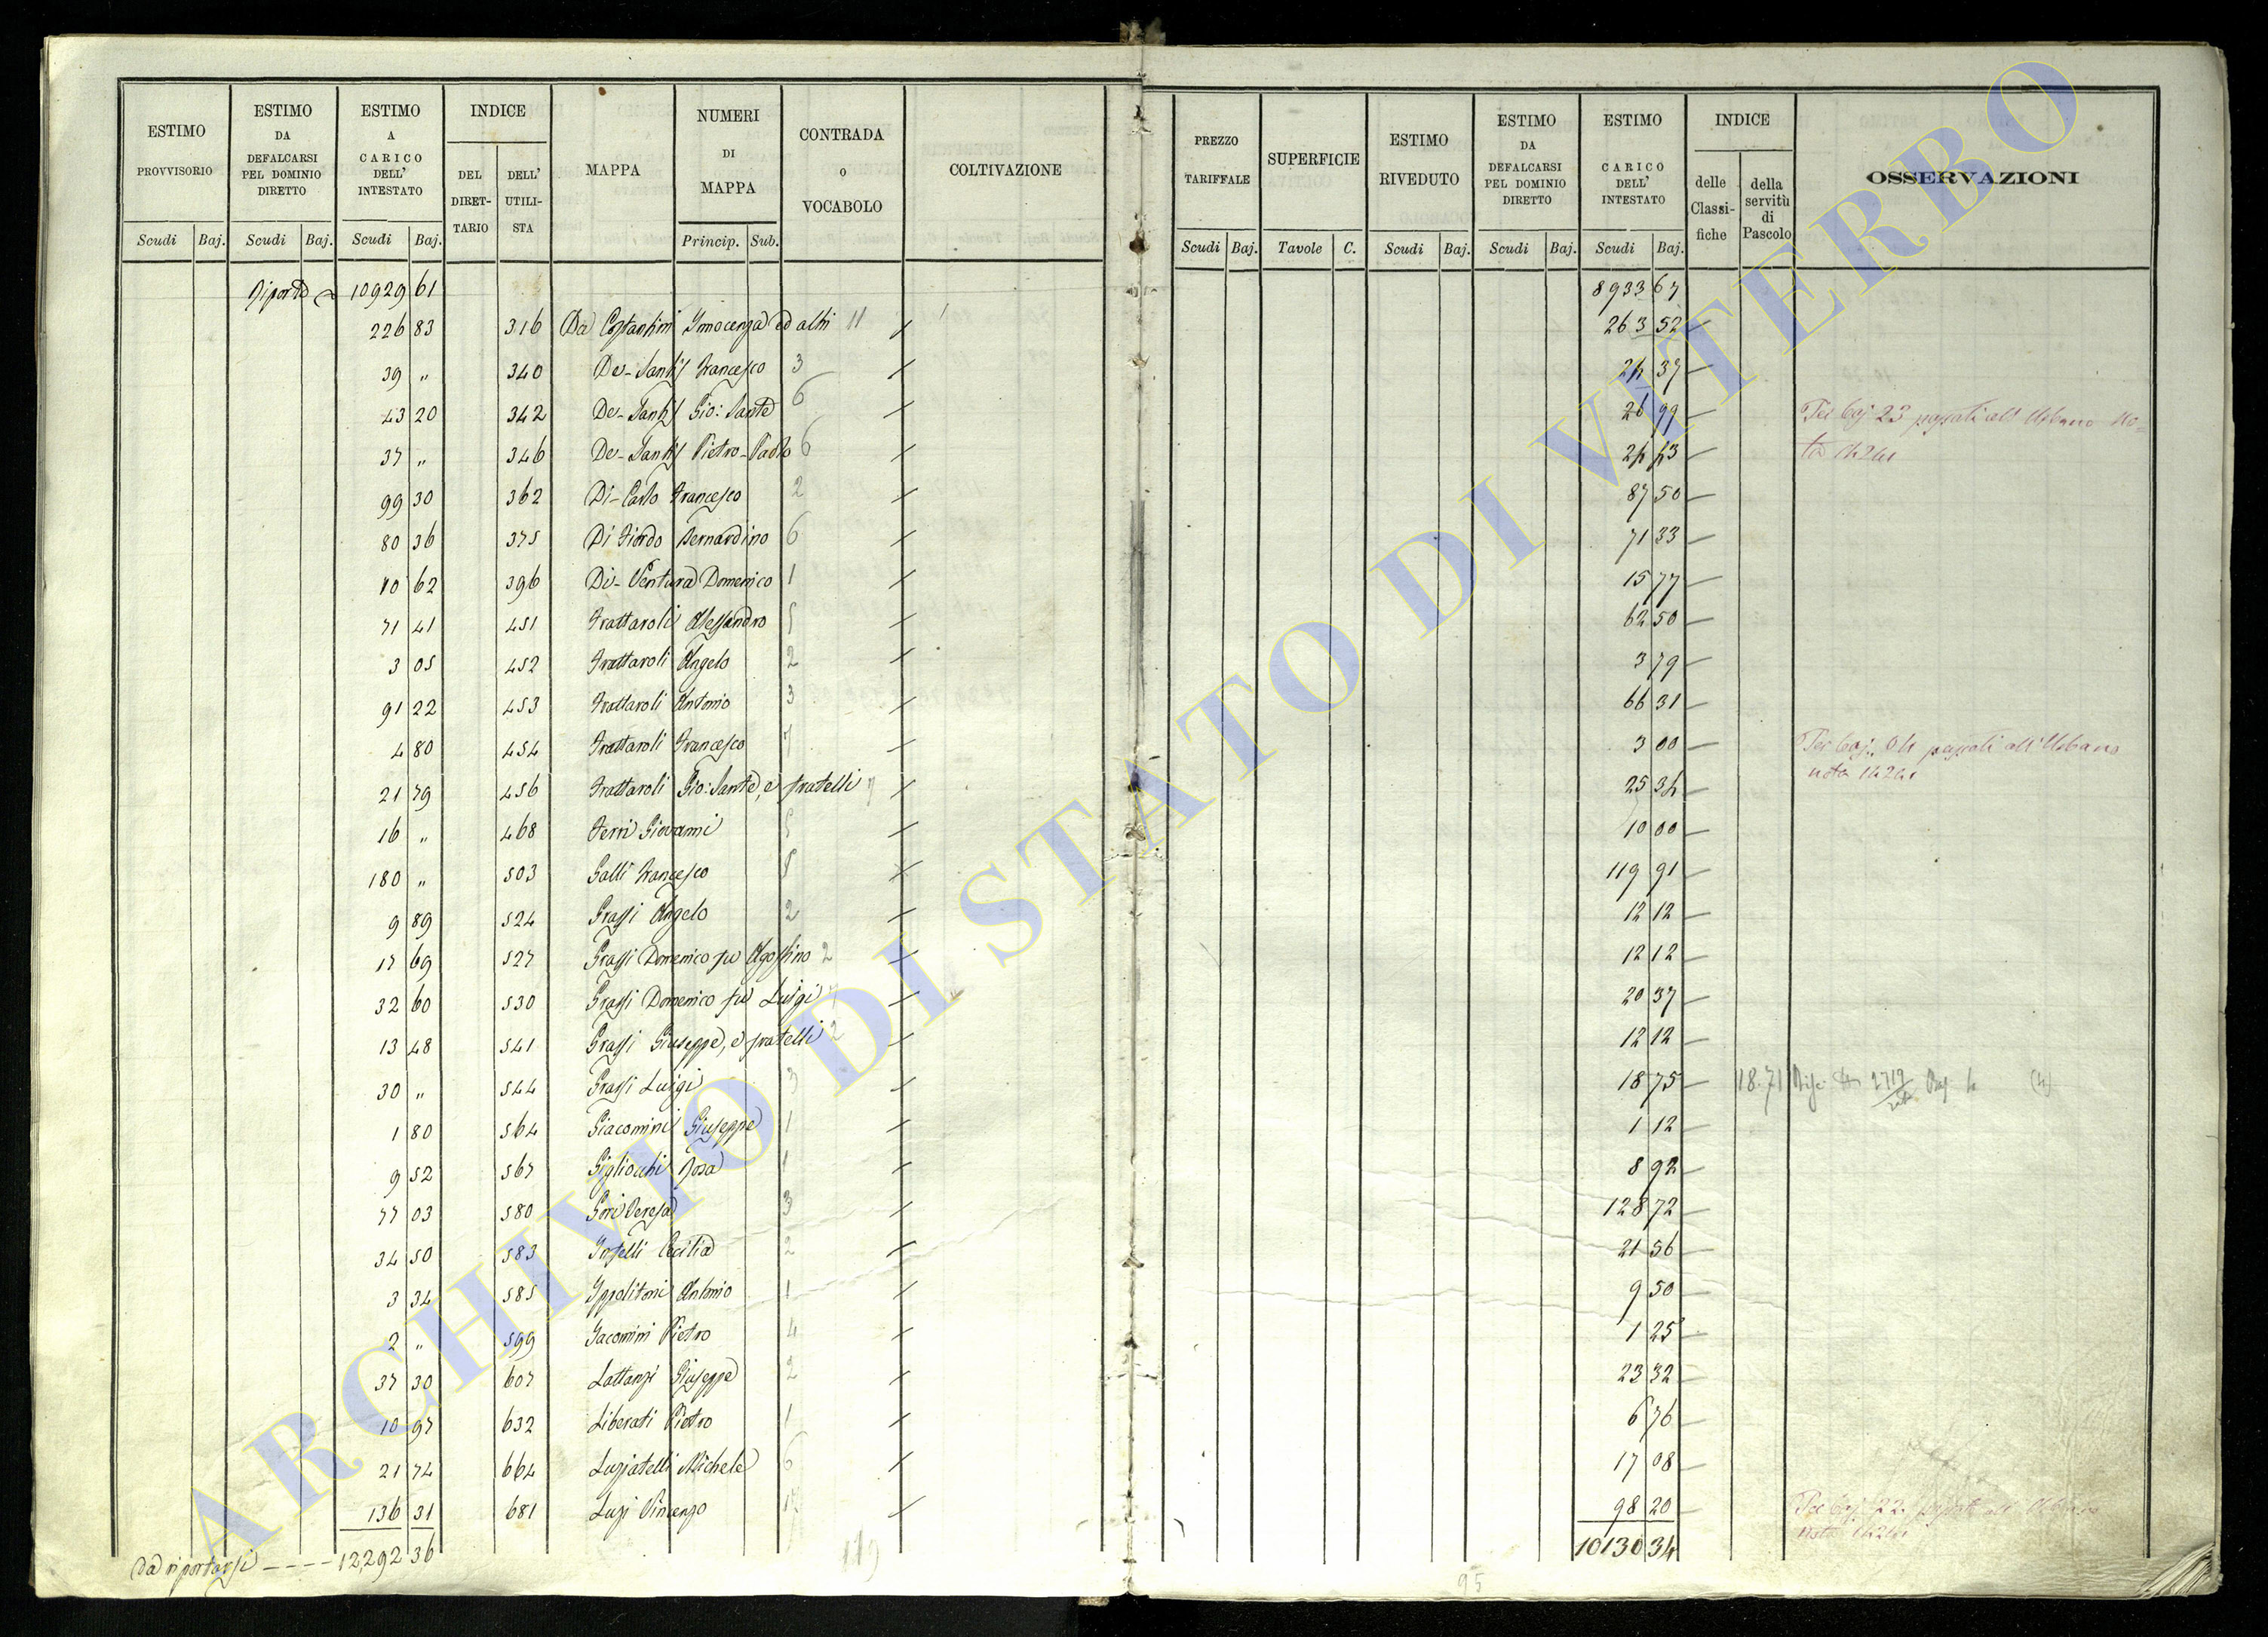 ESTIMO PROVVISORIO | ESTIMO DA DEFALCARSI PEL DOMINIO DIRETTO | ESTIMO A CARICO DELL' INTESTATO | INDICE DEL DIRETTARIO | DELL' UTILISTA | MAPPA | NUMERI DI MAPPA | CONTRADA o VOCABOLO | COLTIVAZIONE | PREZZO TARIFFALE | SUPERFICIE | ESTIMO RIVEDUTO | ESTIMO DA DEFALCARSI PEL DOMINIO DIRETTO | ESTIMO CARICO DELL' INTESTATO | INDICE delle Classifiche | della servitù di Pascolo | OSSERVAZIONI
Scudi Baj. Scudi Baj. Scudi Baj. Princip. Sub. Scudi Baj. Tavole C. Scudi Baj. Scudi Baj. Scudi Baj.
Riporto 10929 61 8933 67
226 83 316 De Costantini Innocenza ed altri 11 263 52
39 " 340 De-Santis Francesco 3 24 37
43 20 342 De-Santis Gio: Sante 6 26 99 Per baj 23 passati all' Urbano No=
37 " 346 De-Santis Pietro-Paolo 6 24 43 ta
99 30 362 Di-Carlo Francesco 2 87 50
80 36 375 Di Fiordo Bernardino 6 71 33
10 62 396 Di-Ventura Domenico 1 15 77
71 41 451 Frattaroli Alessandro 5 62 50
3 05 452 Frattaroli Angelo 2 3 79
91 22 453 Frattaroli Antonio 3 66 31
4 80 454 Frattaroli Francesco 7 3 00 Per baj. 04 passati all'Urbano
21 79 456 Frattaroli Gio: Sante, e fratelli 7 25 34 nota
16 " 468 Ferri Giovanni 5 10 00
180 " 503 Galli Francesco 8 119 91
9 89 524 Grassi Angelo 2 12 12
17 69 527 Grassi Domenico fu Agostino 2 12 12
32 60 530 Grassi Domenico fu Luigi 7 20 37
13 48 541 Grassi Giuseppe, e fratelli 2 12 12
30 " 544 Grassi Luigi 3 18 75 18.71
1 80 564 Giacomini Giuseppe 1 1 12
9 52 567 Gigliocchi Rosa 1 8 92
77 03 580 Gori Teresa 3 128 72
34 50 583 Infelli Cecilia 2 21 56
3 34 585 Ippolitoni Antonio 1 9 50
2 " 599 Jacomini Pietro 4 1 25
37 30 607 Lattanzi Giuseppe 2 23 32
10 97 632 Liberati Pietro 1 6 76
21 74 664 Luzjatelli Michele 6 17 08
136 31 681 Luzi Vincenzo 98 20 Per baj 22 passati all' Urbano
Da riportarsi ---- 12,292 36 10130 34 nota
119 95
ARCHIVIO DI STATO DI VITERBO